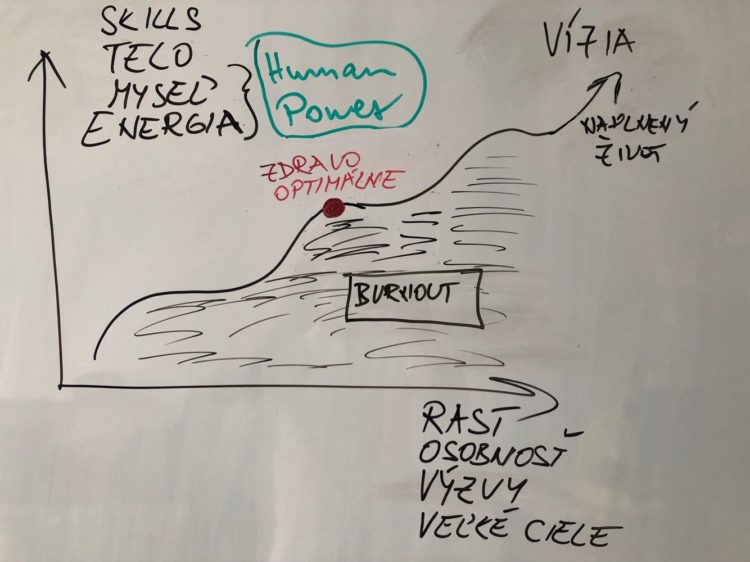 SKILLS
TELO
MYSEĽ
ENERGIA
Human
Power
VÍZIA
NAPLNENÝ
ŽIVOT
ZDRAVO
OPTIMÁLNE
BURNOUT
RAST
OSOBNOSŤ
VÝZVY
VEĽKÉ CIELE